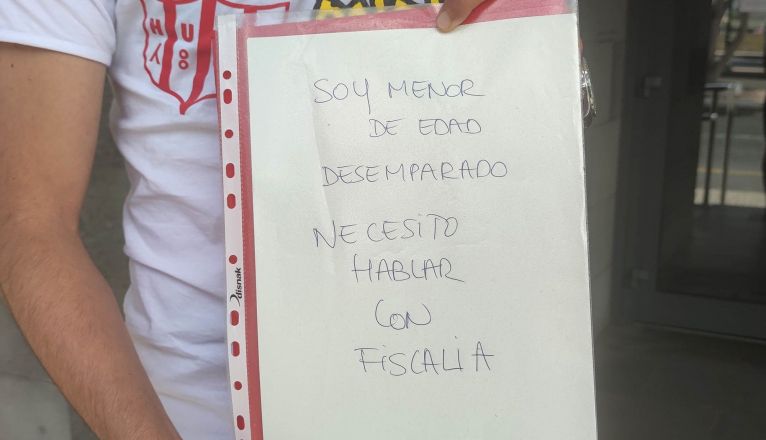 HUY8
SOY MENOR
DE EDAD
DESEMPARADO
NECESITO
HABLAR
CON
FISCALIA
disnak